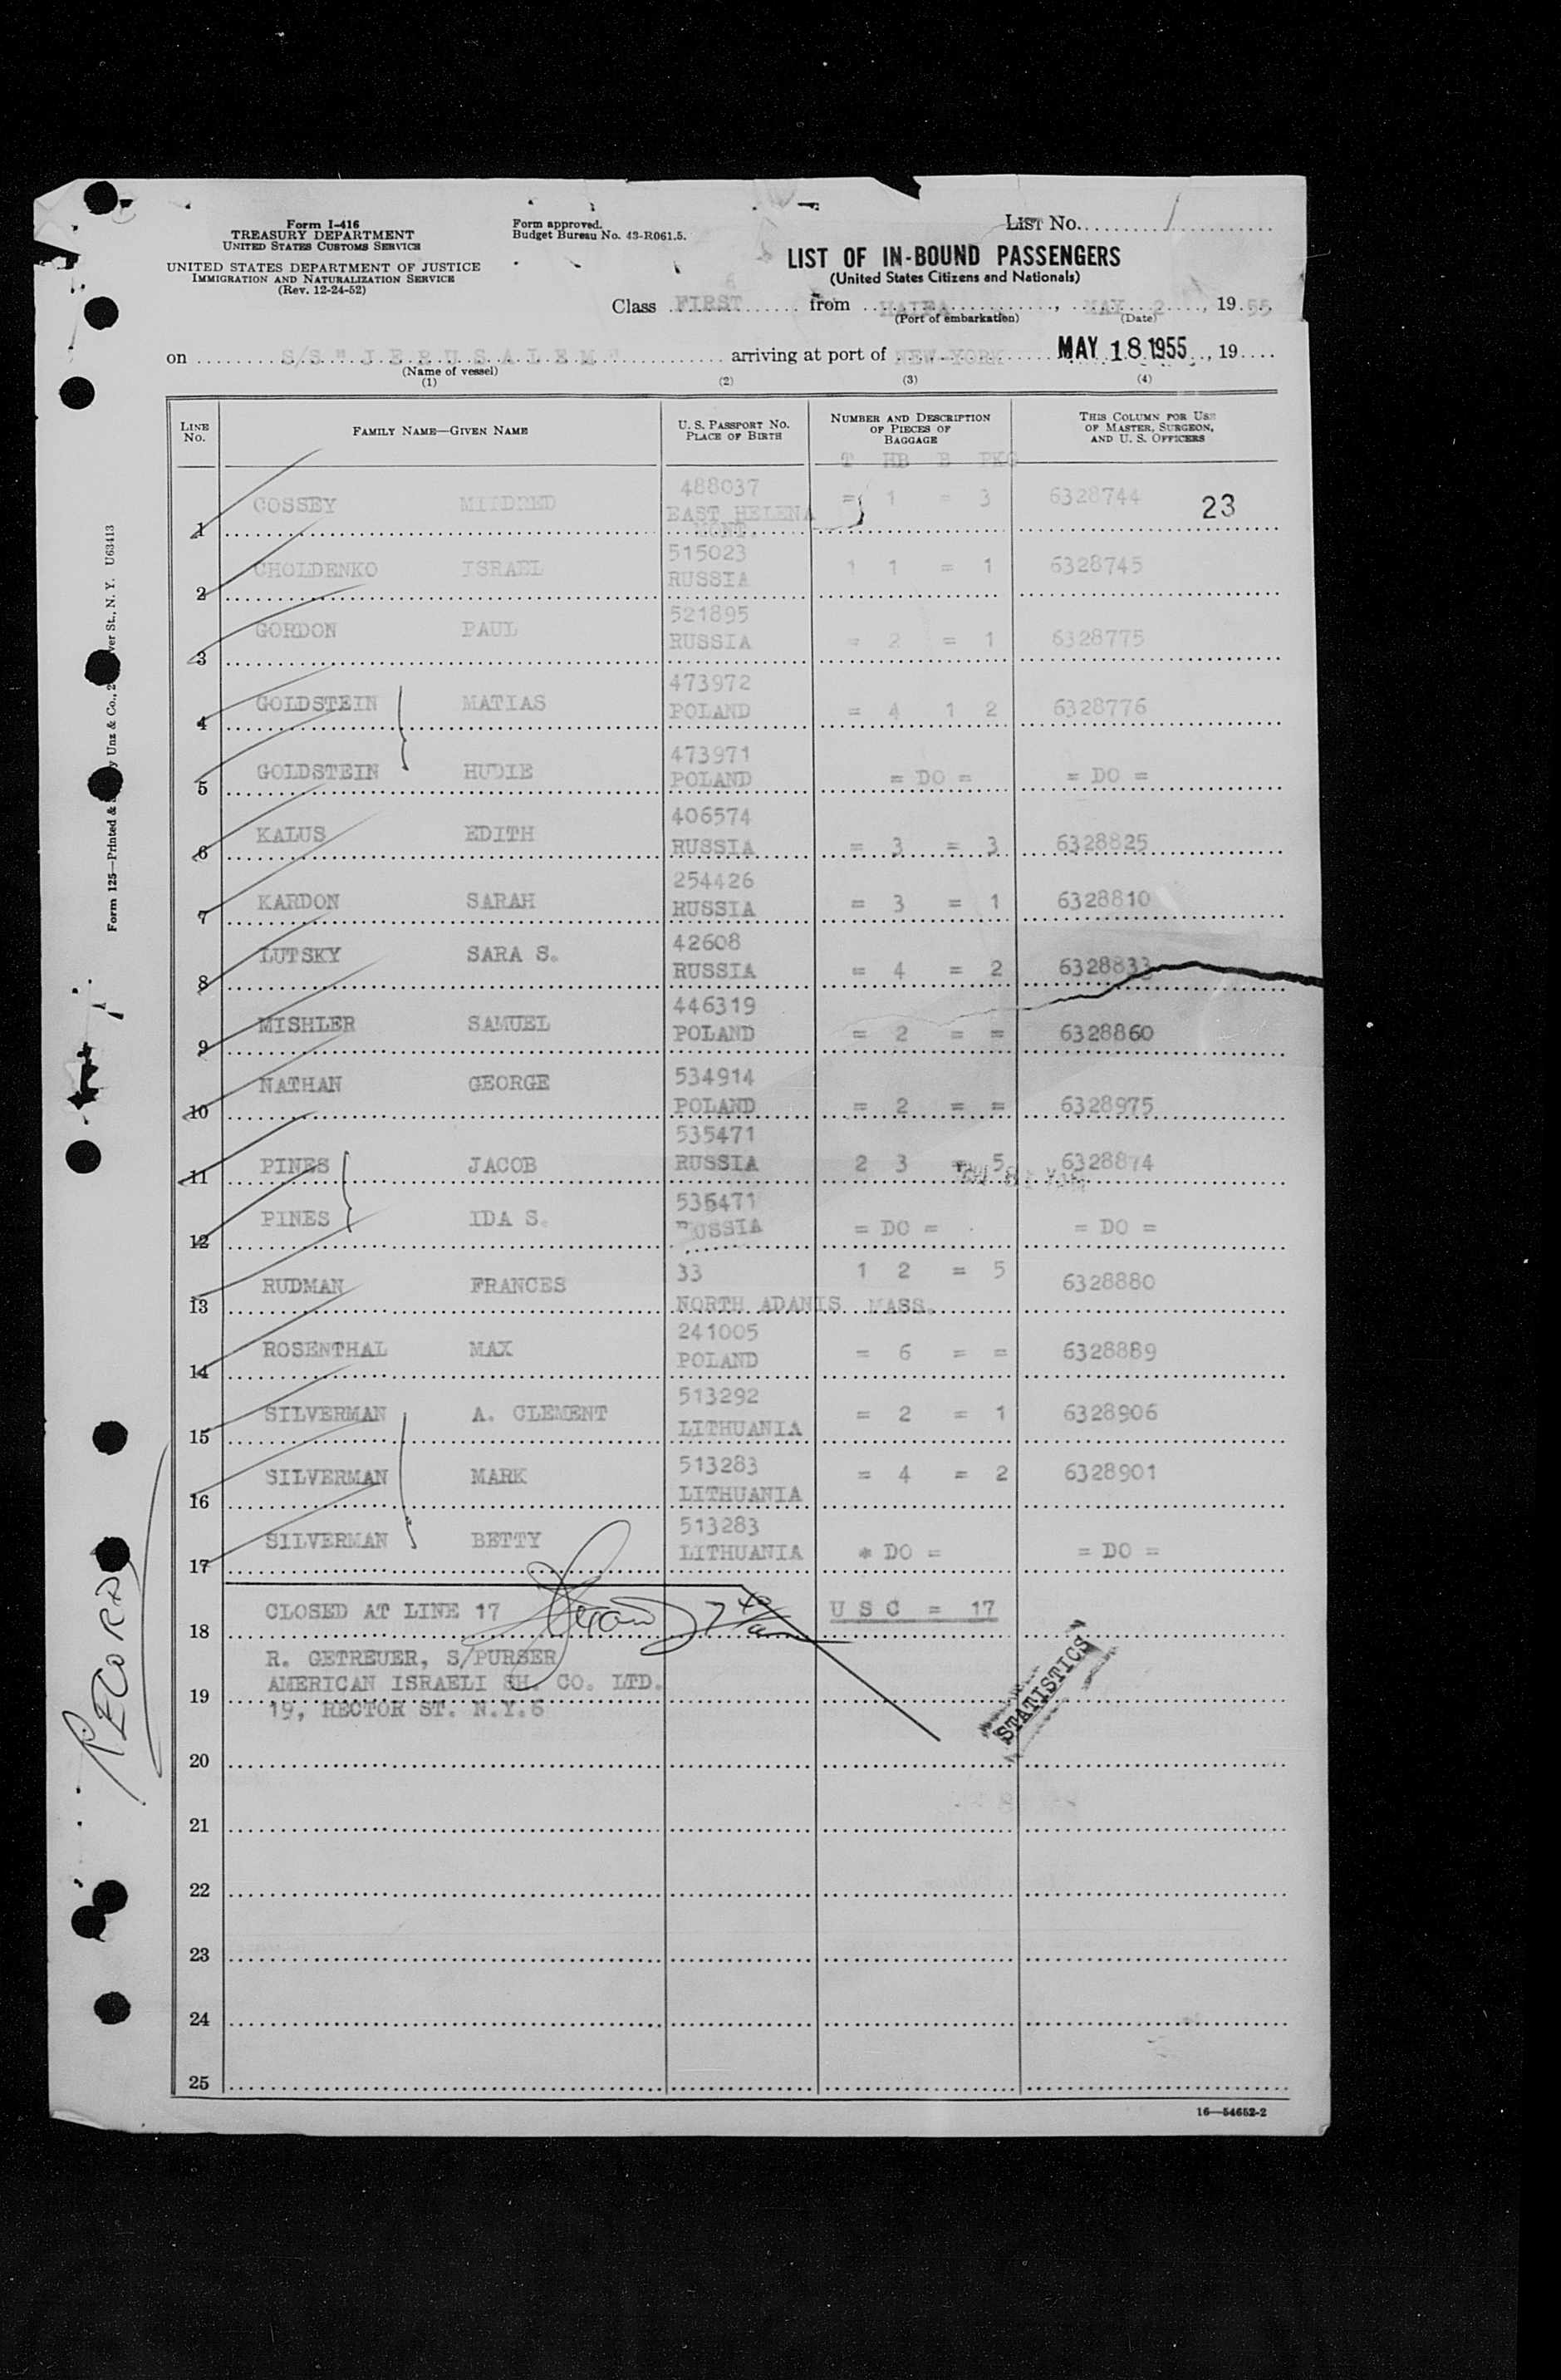 Form I-416
TREASURY DEPARTMENT
UNITED STATES CUSTOMS SERVICE
UNITED STATES DEPARTMENT OF JUSTICE
IMMIGRATION AND NATURALIZATION SERVICE
(Rev. 12-24-52)
Form approved.
Budget Bureau No. 43-R061.5.
LIST No. 1
LIST OF IN-BOUND PASSENGERS
(United States Citizens and Nationals)
Class FIRST from HAIFA, MAY 2, 1955
(Port of embarkation) (Date)
on S/S "JERUSALEM" arriving at port of NEW-YORK MAY 18 1955, 19
(Name of vessel)
(1) (2) (3) (4)
LINE No. FAMILY NAME—GIVEN NAME U. S. PASSPORT No. PLACE OF BIRTH NUMBER AND DESCRIPTION OF PIECES OF BAGGAGE THIS COLUMN FOR USE OF MASTER, SURGEON, AND U. S. OFFICERS
T HB B PKG
1 COSSEY MILDRED 488037 EAST HELENA MONT. = 1 = 3 6328744 23
2 CHOLDENKO ISRAEL 515023 RUSSIA 1 1 = 1 6328745
3 GORDON PAUL 521895 RUSSIA = 2 = 1 6328775
4 GOLDSTEIN MATIAS 473972 POLAND = 4 1 2 6328776
5 GOLDSTEIN HUDIE 473971 POLAND = DO = = DO =
6 KALUS EDITH 406574 RUSSIA = 3 = 3 6328825
7 KARDON SARAH 254426 RUSSIA = 3 = 1 6328810
8 LUTSKY SARA S. 42608 RUSSIA = 4 = 2 6328833
9 MISHLER SAMUEL 446319 POLAND = 2 = = 6328860
10 NATHAN GEORGE 534914 POLAND = 2 = = 6328975
11 PINES JACOB 535471 RUSSIA 2 3 = 5 6328874
12 PINES IDA S. 536471 RUSSIA = DO = = DO =
13 RUDMAN FRANCES 33 NORTH ADAMS MASS. 1 2 = 5 6328880
14 ROSENTHAL MAX 241005 POLAND = 6 = = 6328889
15 SILVERMAN A. CLEMENT 513292 LITHUANIA = 2 = 1 6328906
16 SILVERMAN MARK 513283 LITHUANIA = 4 = 2 6328901
17 SILVERMAN BETTY 513283 LITHUANIA * DO = = DO =
18 CLOSED AT LINE 17 U S C = 17
R. GETREUER, S/PURSER
19 AMERICAN ISRAELI SH. CO. LTD.
19, RECTOR ST. N.Y.6
STATISTICS
20
21
22
23
24
25
16—54652-2
RECORD
Form 125—Printed &
y Unz & Co., 2
ver St., N. Y. U63413